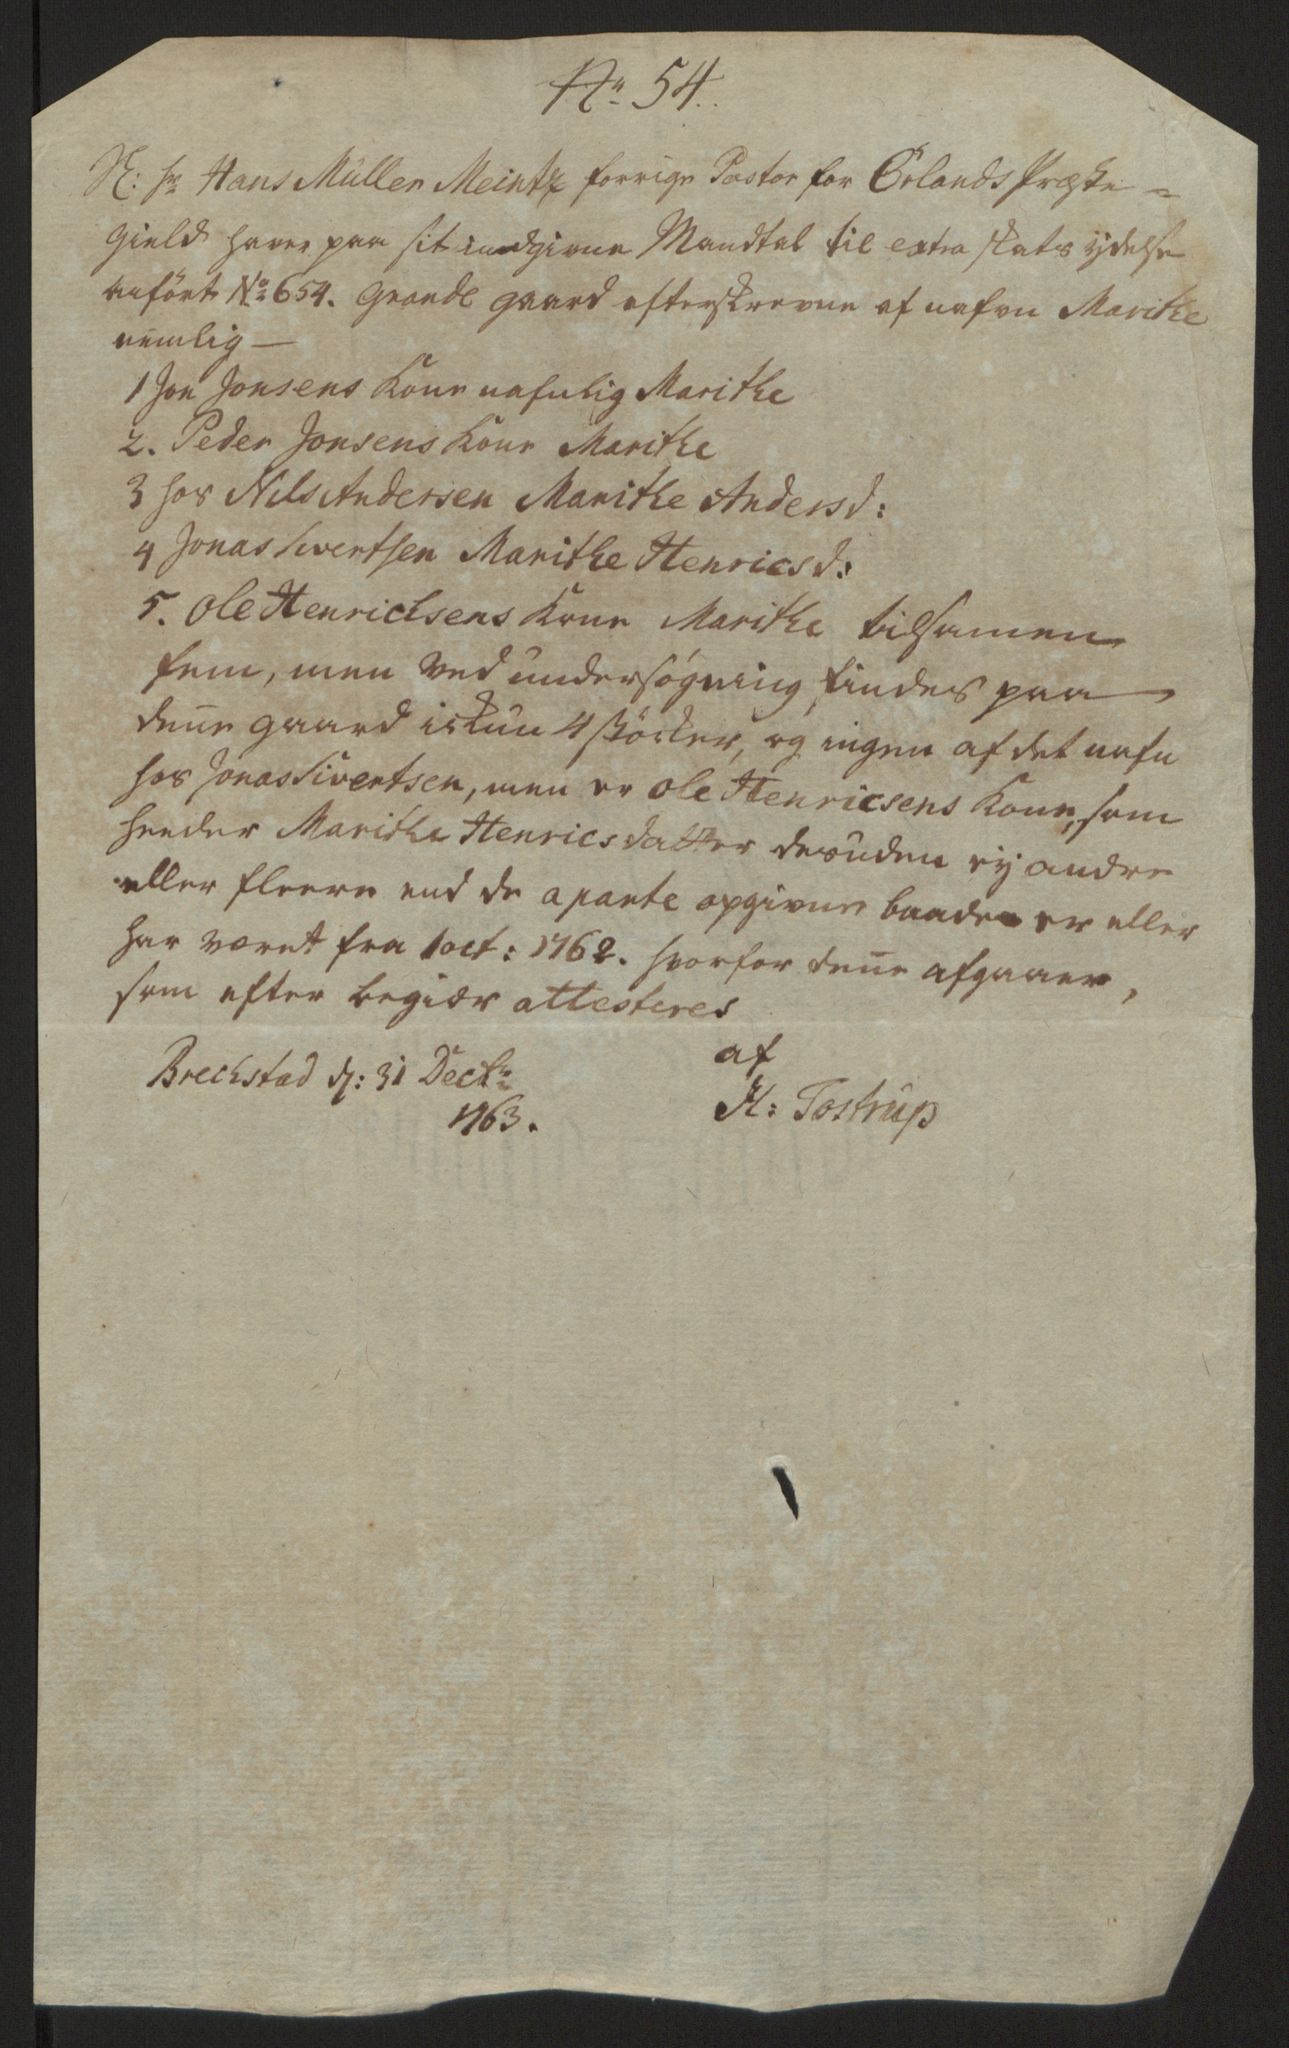 No 54.
H: hr Hans Müller Meintz forrige Pastor for Örlands Præste-
Gield haver paa sit indgivne Mandtal til extra skats ydelse
anført No 654. Grande gaard efterskrevne af nafn Marithe
nemlig —
1 Jon Jonsens Kone nafnlig Marithe
2. Peder Jonsens Kone Marithe
3 hos Nils Andersen Marithe Andersd:
4 Jonas Sivertsen Marithe Henricsd:
5. Ole Henrichsens Kone Marithe tilsamen
fem, men ved undersøgning findes paa
dene gaard ickun 4 støcker, og ingen af det nafn
hos Jonas Sivertsen, men er Ole Henricsens Kone, som
heeder Marithe Henricsdatter desuden ej andre
eller fleere end de aparte opgivne baade er eller
har været fra 1 oct: 1762. hvorfor dene afgaaer,
som efter begiær attesteres
af
Brechstad d: 31 Decbr
1763.
H: Tostrup